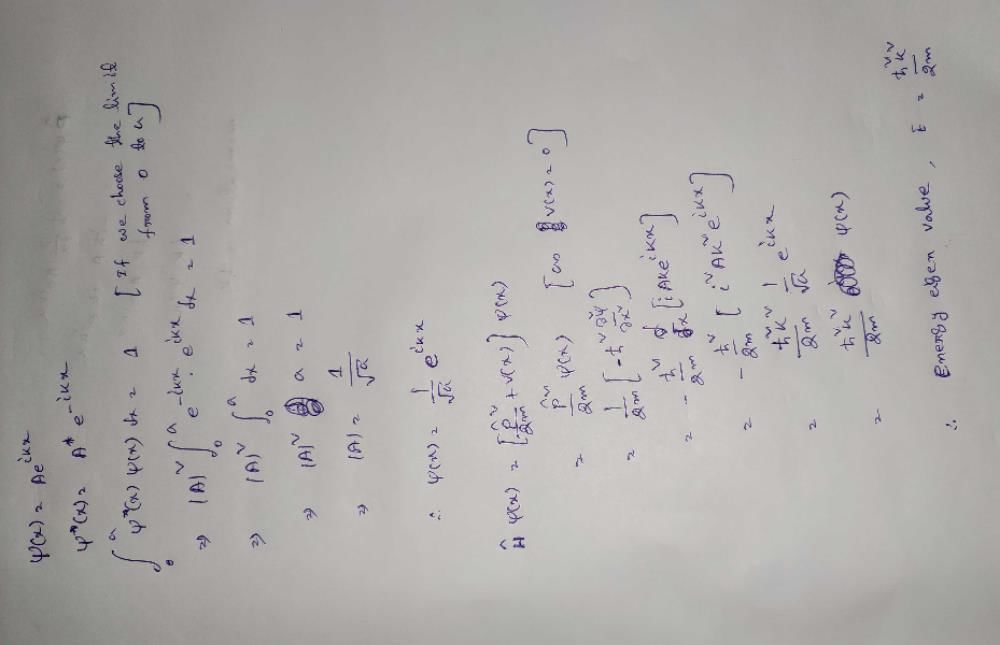 ψ(x) = Ae^{ikx}
ψ*(x) = A* e^{-ikx}
∫₀^a ψ*(x) ψ(x) dx = 1 [If we choose the limit from 0 to a]
⇒ |A|² ∫₀^a e^{-ikx} · e^{ikx} dx = 1
⇒ |A|² ∫₀^a dx = 1
⇒ |A|² a = 1
⇒ |A| = 1/√a
∴ ψ(x) = 1/√a e^{ikx}
Ĥ ψ(x) = [p̂²/2m + v(x)] ψ(x)
= p̂²/2m ψ(x) [as v(x) = 0]
= 1/2m [-ħ² ∂²ψ/∂x²]
= - ħ²/2m d/dx [iAke^{ikx}]
= - ħ²/2m [i²Ak² e^{ikx}]
= ħ²k²/2m 1/√a e^{ikx}
= ħ²k²/2m ψ(x)
∴ Energy eigen value, E = ħ²k²/2m